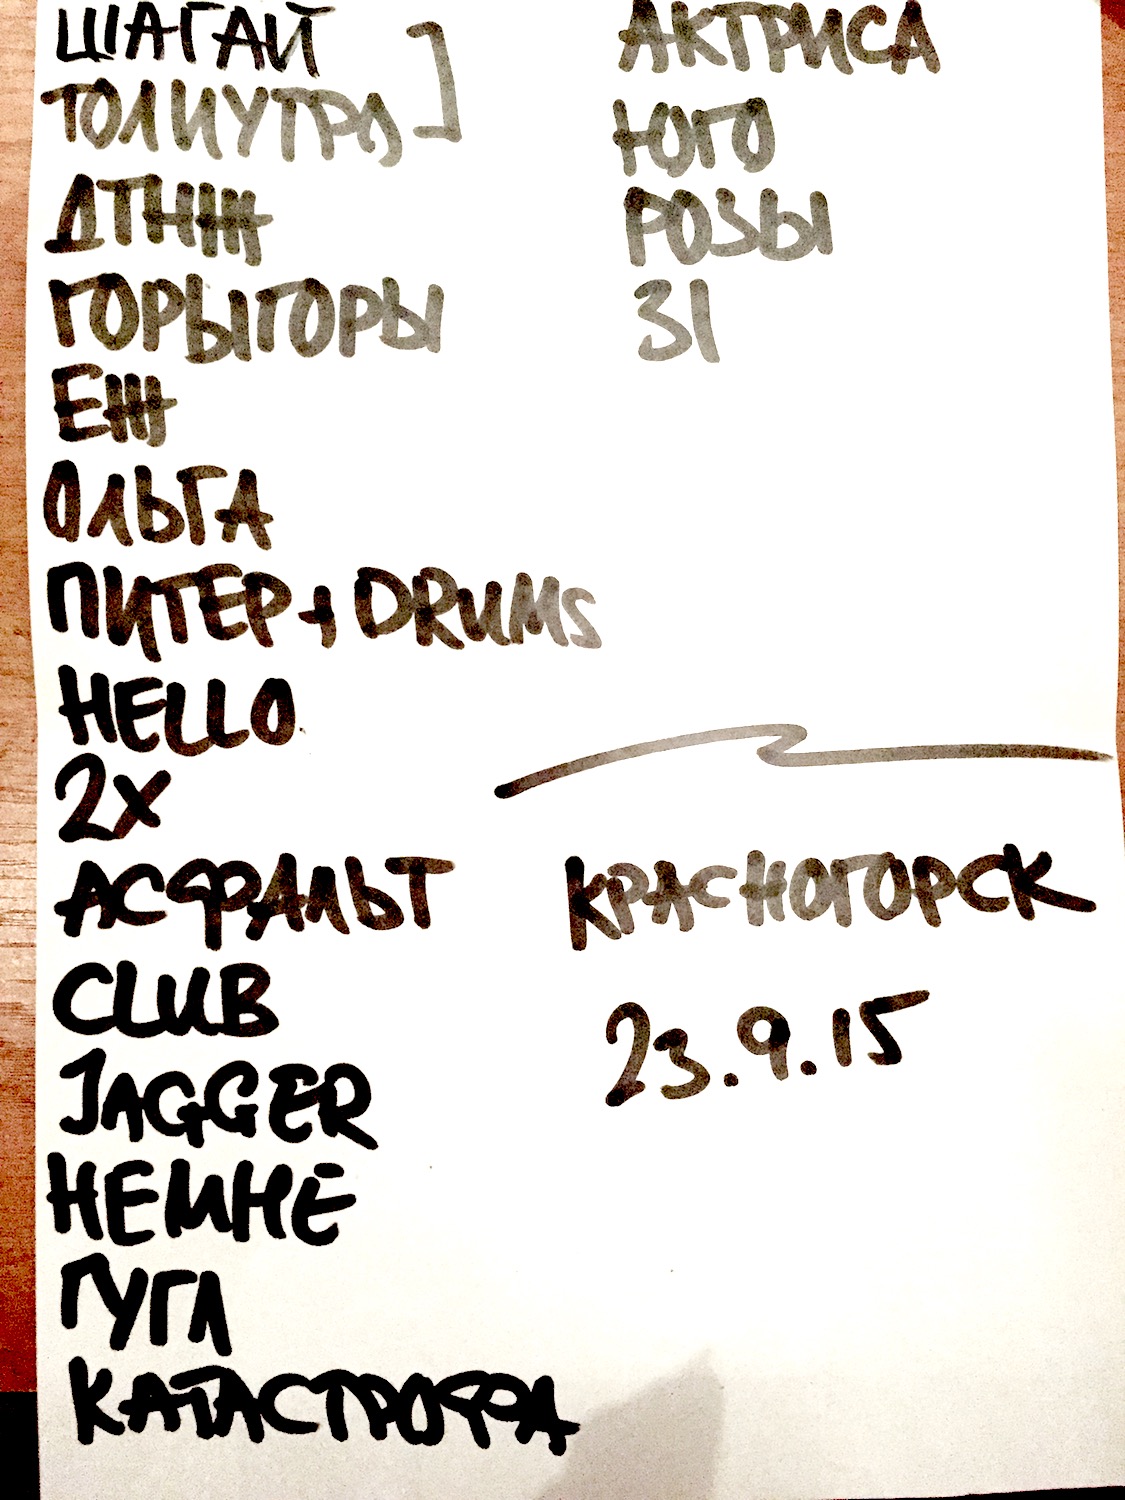 ШАГАЙ
ТОЛИУТРО
ДТНЖ
ГОРЫГОРЫ
ЕЖ
ОЛЬГА
ПИТЕР + DRUMS
HELLO
2X
АСФАЛЬТ
CLUB
JAGGER
НЕМНЕ
ГУГЛ
КАТАСТРОФА
АКТРИСА
ЮГО
РОЗЫ
31
КРАСНОГОРСК
23.9.15